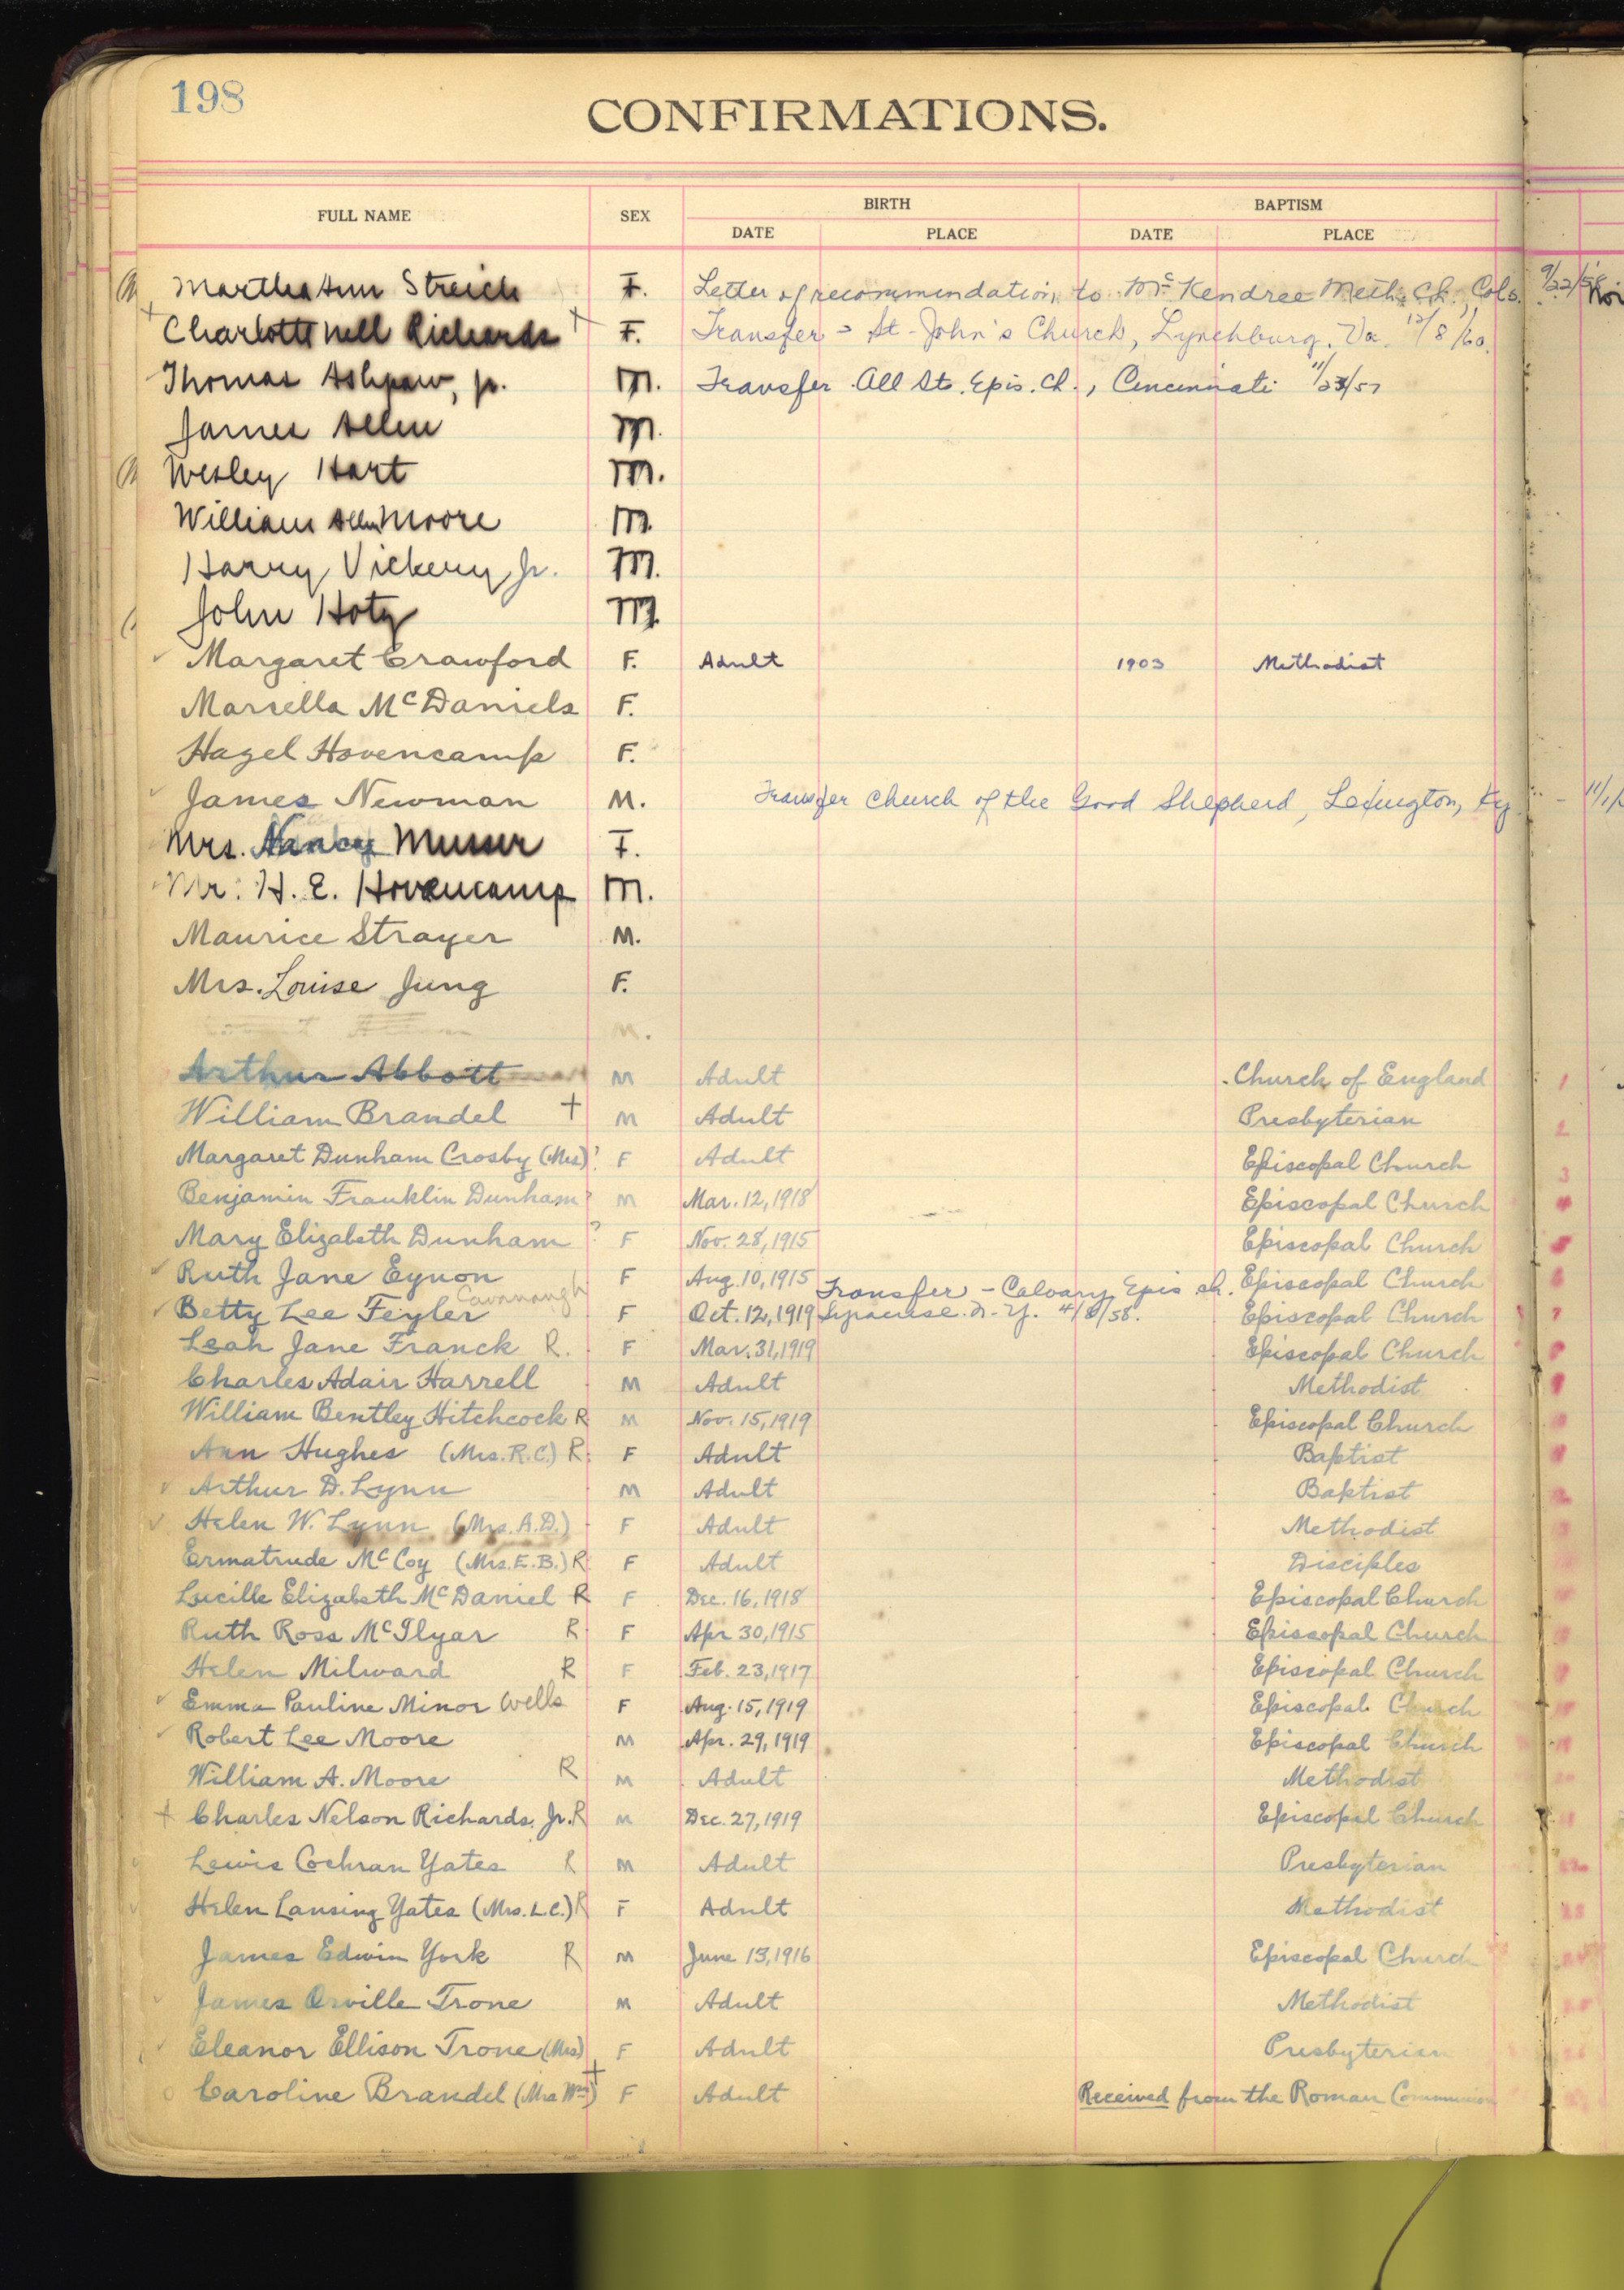 198
CONFIRMATIONS.
FULL NAME SEX BIRTH BAPTISM
DATE PLACE DATE PLACE
Martha Ann Streich F. Letter of recommendation to Mc Kendree Meth. Ch., Cols. 9/22/58
+ Charlotte Nell Richards + F. Transfer - St. John's Church, Lynchburg, Va. 12/8/60.
Thomas Ashpaw, Jr. M. Transfer All Sts. Epis. Ch., Cincinnati 11/23/57
James Allen M.
Wesley Hart M.
William Allen Moore M.
Harry Vickery Jr. M.
John Hotz M.
✓ Margaret Crawford F. Adult 1903 Methodist
Marsella McDaniels F.
Hazel Hovencamp F.
✓ James Newman M. Transfer Church of the Good Shepherd, Lexington, Ky. - 11/1/
Mrs. Nancy Musser F.
Mr. H. E. Hovencamp M.
Maurice Strayer M.
Mrs. Louise Jung F.
M.
Arthur Abbott M Adult Church of England 1
William Brandel + M Adult Presbyterian 2
Margaret Dunham Crosby (Mrs) ? F Adult Episcopal Church 3
Benjamin Franklin Dunham ? M Mar. 12, 1918 Episcopal Church 4
Mary Elizabeth Dunham ? F Nov. 28, 1915 Episcopal Church 5
✓ Ruth Jane Eynon F Aug. 10, 1915 Transfer - Calvary Epis ch. Episcopal Church 6
Cavanaugh
✓ Betty Lee Feyler F Oct. 12, 1919 Syracuse. N. Y. 4/8/58. Episcopal Church 7
Leah Jane Franck R. F Mar. 31, 1919 Episcopal Church
Charles Adair Harrell M Adult Methodist
William Bentley Hitchcock R M Nov. 15, 1919 Episcopal Church
Ann Hughes (Mrs. R.C.) R. F Adult Baptist
✓ Arthur D. Lynn M Adult Baptist
✓ Helen W. Lynn (Mrs. A.D.) F Adult Methodist
Ermatrude McCoy (Mrs. E.B.) R F Adult Disciples
Lucille Elizabeth McDaniel R F Dec. 16, 1918 Episcopal Church
Ruth Ross McIlyar R F Apr 30, 1915 Episcopal Church
Helen Milward R F Feb. 23, 1917 Episcopal Church
✓ Emma Pauline Minor Wells F Aug. 15, 1919 Episcopal Church
✓ Robert Lee Moore M Apr. 29, 1919 Episcopal Church
William A. Moore R M Adult Methodist
+ Charles Nelson Richards, Jr. R M Dec. 27, 1919 Episcopal Church
Lewis Cochran Yates R M Adult Presbyterian
Helen Lansing Yates (Mrs. L.C.) R F Adult Methodist
James Edwin York R M June 13, 1916 Episcopal Church
✓ James Orville Trone M Adult Methodist
✓ Eleanor Ellison Trone (Mrs) F Adult Presbyterian
Caroline Brandel (Mrs Wm) + F Adult Received from the Roman Communion